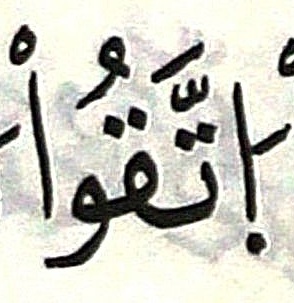 اِتَّقُواْ